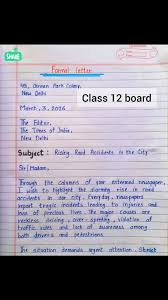 SHINE
Formal letter
Chenan Park Colony,
New Delhi
Class 12 board
March, 3, 2026
The Editor,
The Times of India,
New Delhi
Subject: Rising Road Accidents in the City.
Sir/Madam,
Through the columns of your esteemed newspaper,
I wish to highlight the alarming rise in road
accidents in our city. Everyday, newspapers
report tragic incidents leading to injuries and
loss of precious lives. The major causes are
reckless driving, over-speeding, violation of
traffic rules and lack of awareness among
both drivers and pedestrians.
The situation demands urgent attention. Strict